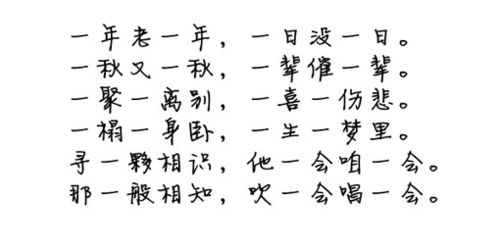 一年老一年，一日没一日。
一秋又一秋，一辈催一辈。
一聚一离别，一喜一伤悲。
一榻一身卧，一生一梦里。
寻一夥相识，他一会咱一会。
那一般相知，吹一会唱一会。